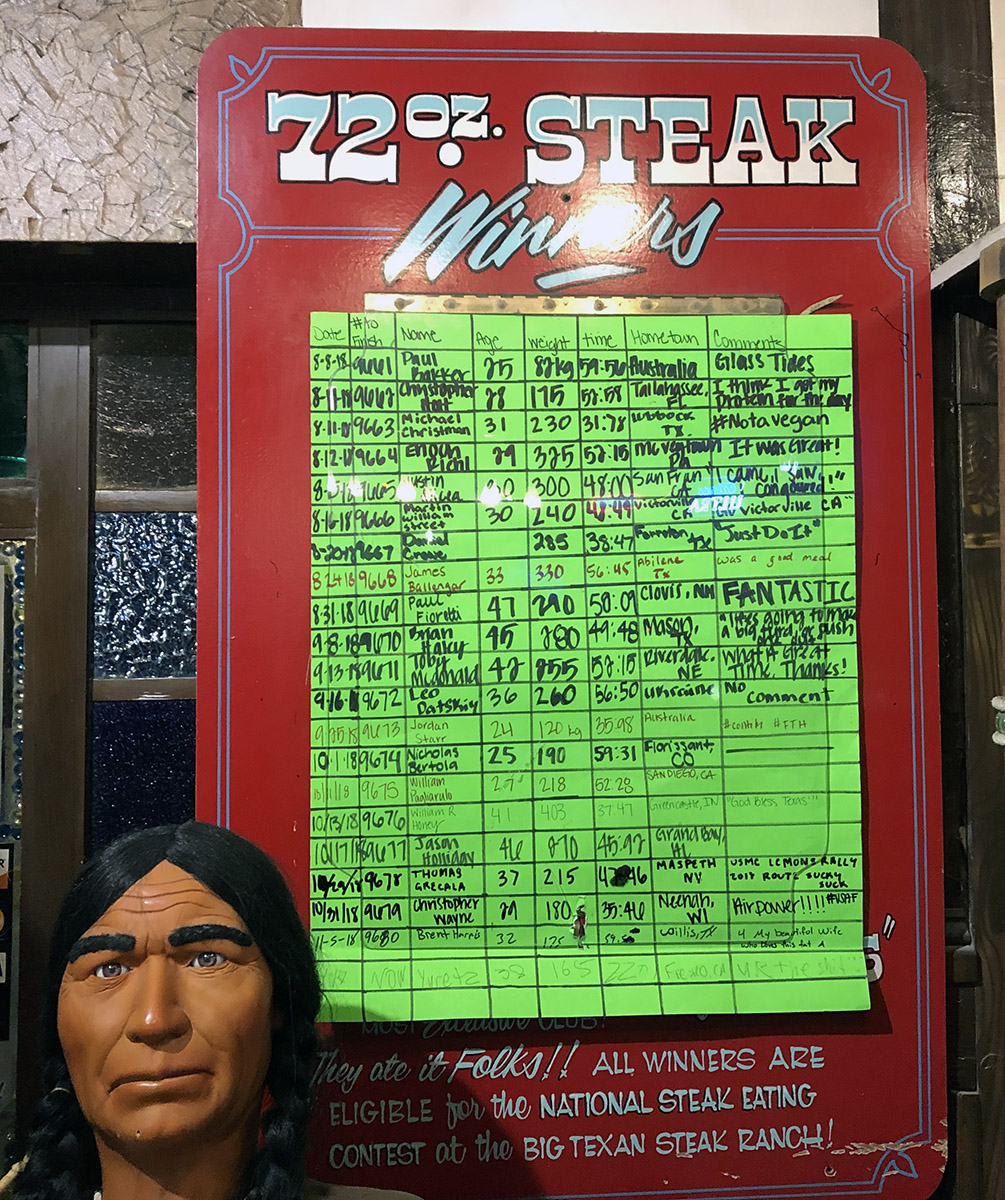 72 OZ. STEAK
Winners
Date #to Finish Name Age weight time Hometown Comments
8-8-18 9661 Paul Bakker 25 82kg 59:56 Australia Glass Tides
8-11-18 9662 Christopher Hart 28 175 52:58 Tallahassee, FL I think I got my protein for the day
8-11-18 9663 Michael Christman 31 230 31:78 Lubbock TX #Notavegan
8-12-18 9664 Enoch 29 325 52:15 PA It was Great!
9665 300 48:00 San Fran CA "I came, I saw, I conquered!"
8-16-18 9666 Martin William Street 30 240 Victorville CA Victorville CA"
8-20-18 9667 285 38:47 TX "Just Do It"
8-24-18 9668 James Ballengar 33 330 56:45 Abilene Tx was a good meal
8-31-18 9669 Paul Fioretti 47 290 58:09 Clovis, NM FANTASTIC
9-8-18 9670 Brian Haley 45 280 49:48 Mason, "likes going to a big
9-13-18 9671 Toby McDonald 42 255 52:15 Riverdale, NE What A Great Time, Thanks!
9-16-18 9672 Leo Datskiy 36 260 56:50 Ukraine No comment
9-25-18 9673 Jordan Starr 24 120 kg 35:98 Australia #FTH
10-1-18 9674 Nicholas Bertola 25 190 59:31 Florissant, CO
10/11/18 9675 William Pagliarulo 27 218 52:28 SANDIEGO, CA
10/13/18 9676 William R Honey 41 403 37:47 Greencastle, IN "God Bless Texas"
10/17/18 9677 Jason Holliday 46 270 45:92 Grand Bay,
10/29/18 9678 THOMAS GRECALA 37 215 MASPETH NY USMC LEMONS RALLY 2018 ROUTE SUCKY SUCK
10/31/18 9679 Christopher Wayne 29 180 35:46 Neenah, WI Airpower!!!! #USAF
11-5-18 9680 Brent Harris 32 175 Willis, TX 4 My beautiful Wife who
NOW 38 165 Fresno, CA
MOST Exclusive CLUB!
They ate it Folks!! ALL WINNERS ARE
ELIGIBLE for the NATIONAL STEAK EATING
CONTEST at the BIG TEXAN STEAK RANCH!